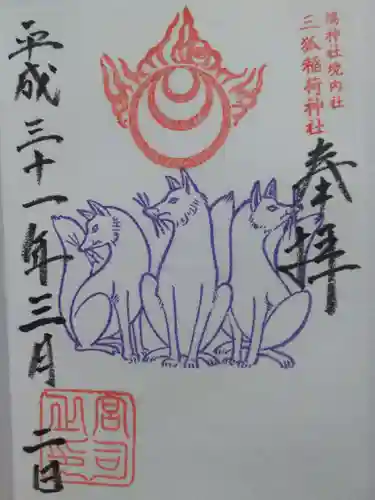 鴻神社境内社
三狐稲荷神社
奉拝
平成三十一年三月二日
宮司
之印